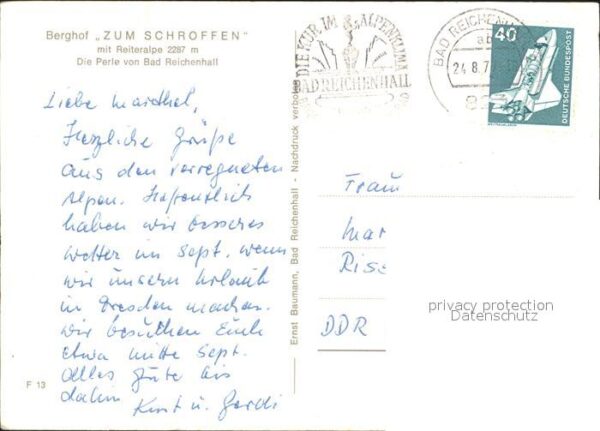 Berghof „ZUM SCHROFFEN"
mit Reiteralpe 2287 m
Die Perle von Bad Reichenhall
Liebe
Herzliche Grüße
aus den verregneten
Alpen. Hoffentlich
haben wir besseres
Wetter im Sept. wenn
wir unsern Urlaub
in Dresden machen.
Wir besuchen Euch
etwa mitte Sept.
Alles Gute bis
dahin Kurt u. Gerdi
F 13
Ernst Baumann, Bad Reichenhall - Nachdruck verboten
DIE KUR IM ALPENKLIMA
BAD REICHENHALL
BAD REICHENHALL
24.8.7
40
DEUTSCHE BUNDESPOST
Frau
Mar
Rise
DDR
privacy protection
Datenschutz